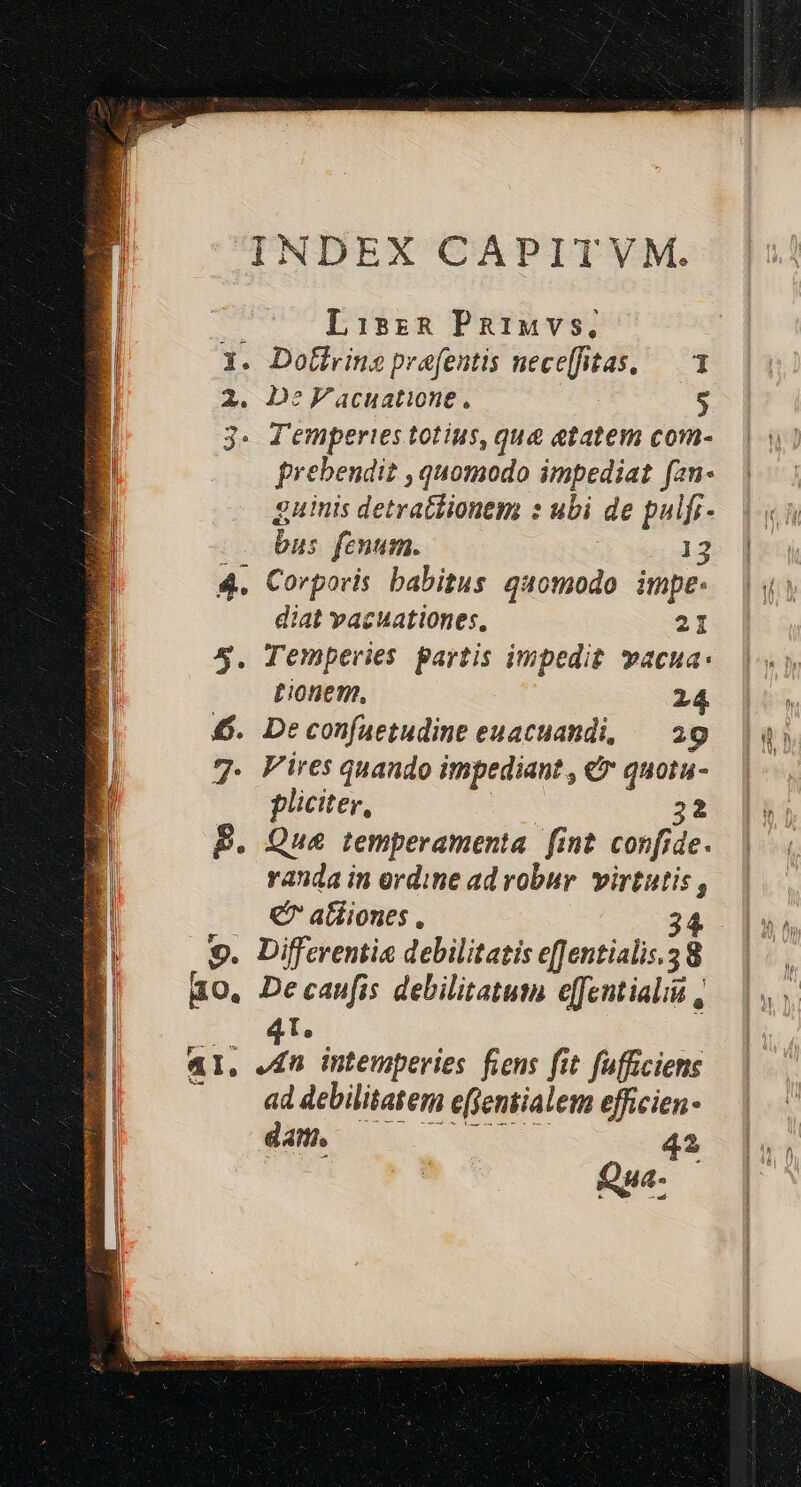 INDEX CAPITVM.
LIBER PRIMVS.
1. Doctrinæ præſentis neceſſitas, 1
2. De Vacuatione. 5
3. Temperies totius, quæ ætatem com-
prehendit, quomodo impediat ſan-
guinis detractionem : ubi de pulſi-
bus ſenum. 13
4. Corporis habitus quomodo impe-
diat vacuationes, 21
5. Temperies partis impedit vacua-
tionem, 24
6. De conſuetudine euacuandi, 29
7. Vires quando impediant, & quotu-
pliciter, 32
8. Quæ temperamenta ſint conſide-
randa in ordine ad robur virtutis,
& actiones, 34
9. Differentiæ debilitatis eſſentialis. 38
10. De cauſis debilitatum eſſentialiũ,
41.
11. An intemperies ſiens ſit ſufficiens
ad debilitatem eſſentialem efficien-
dam. 42
Qua-